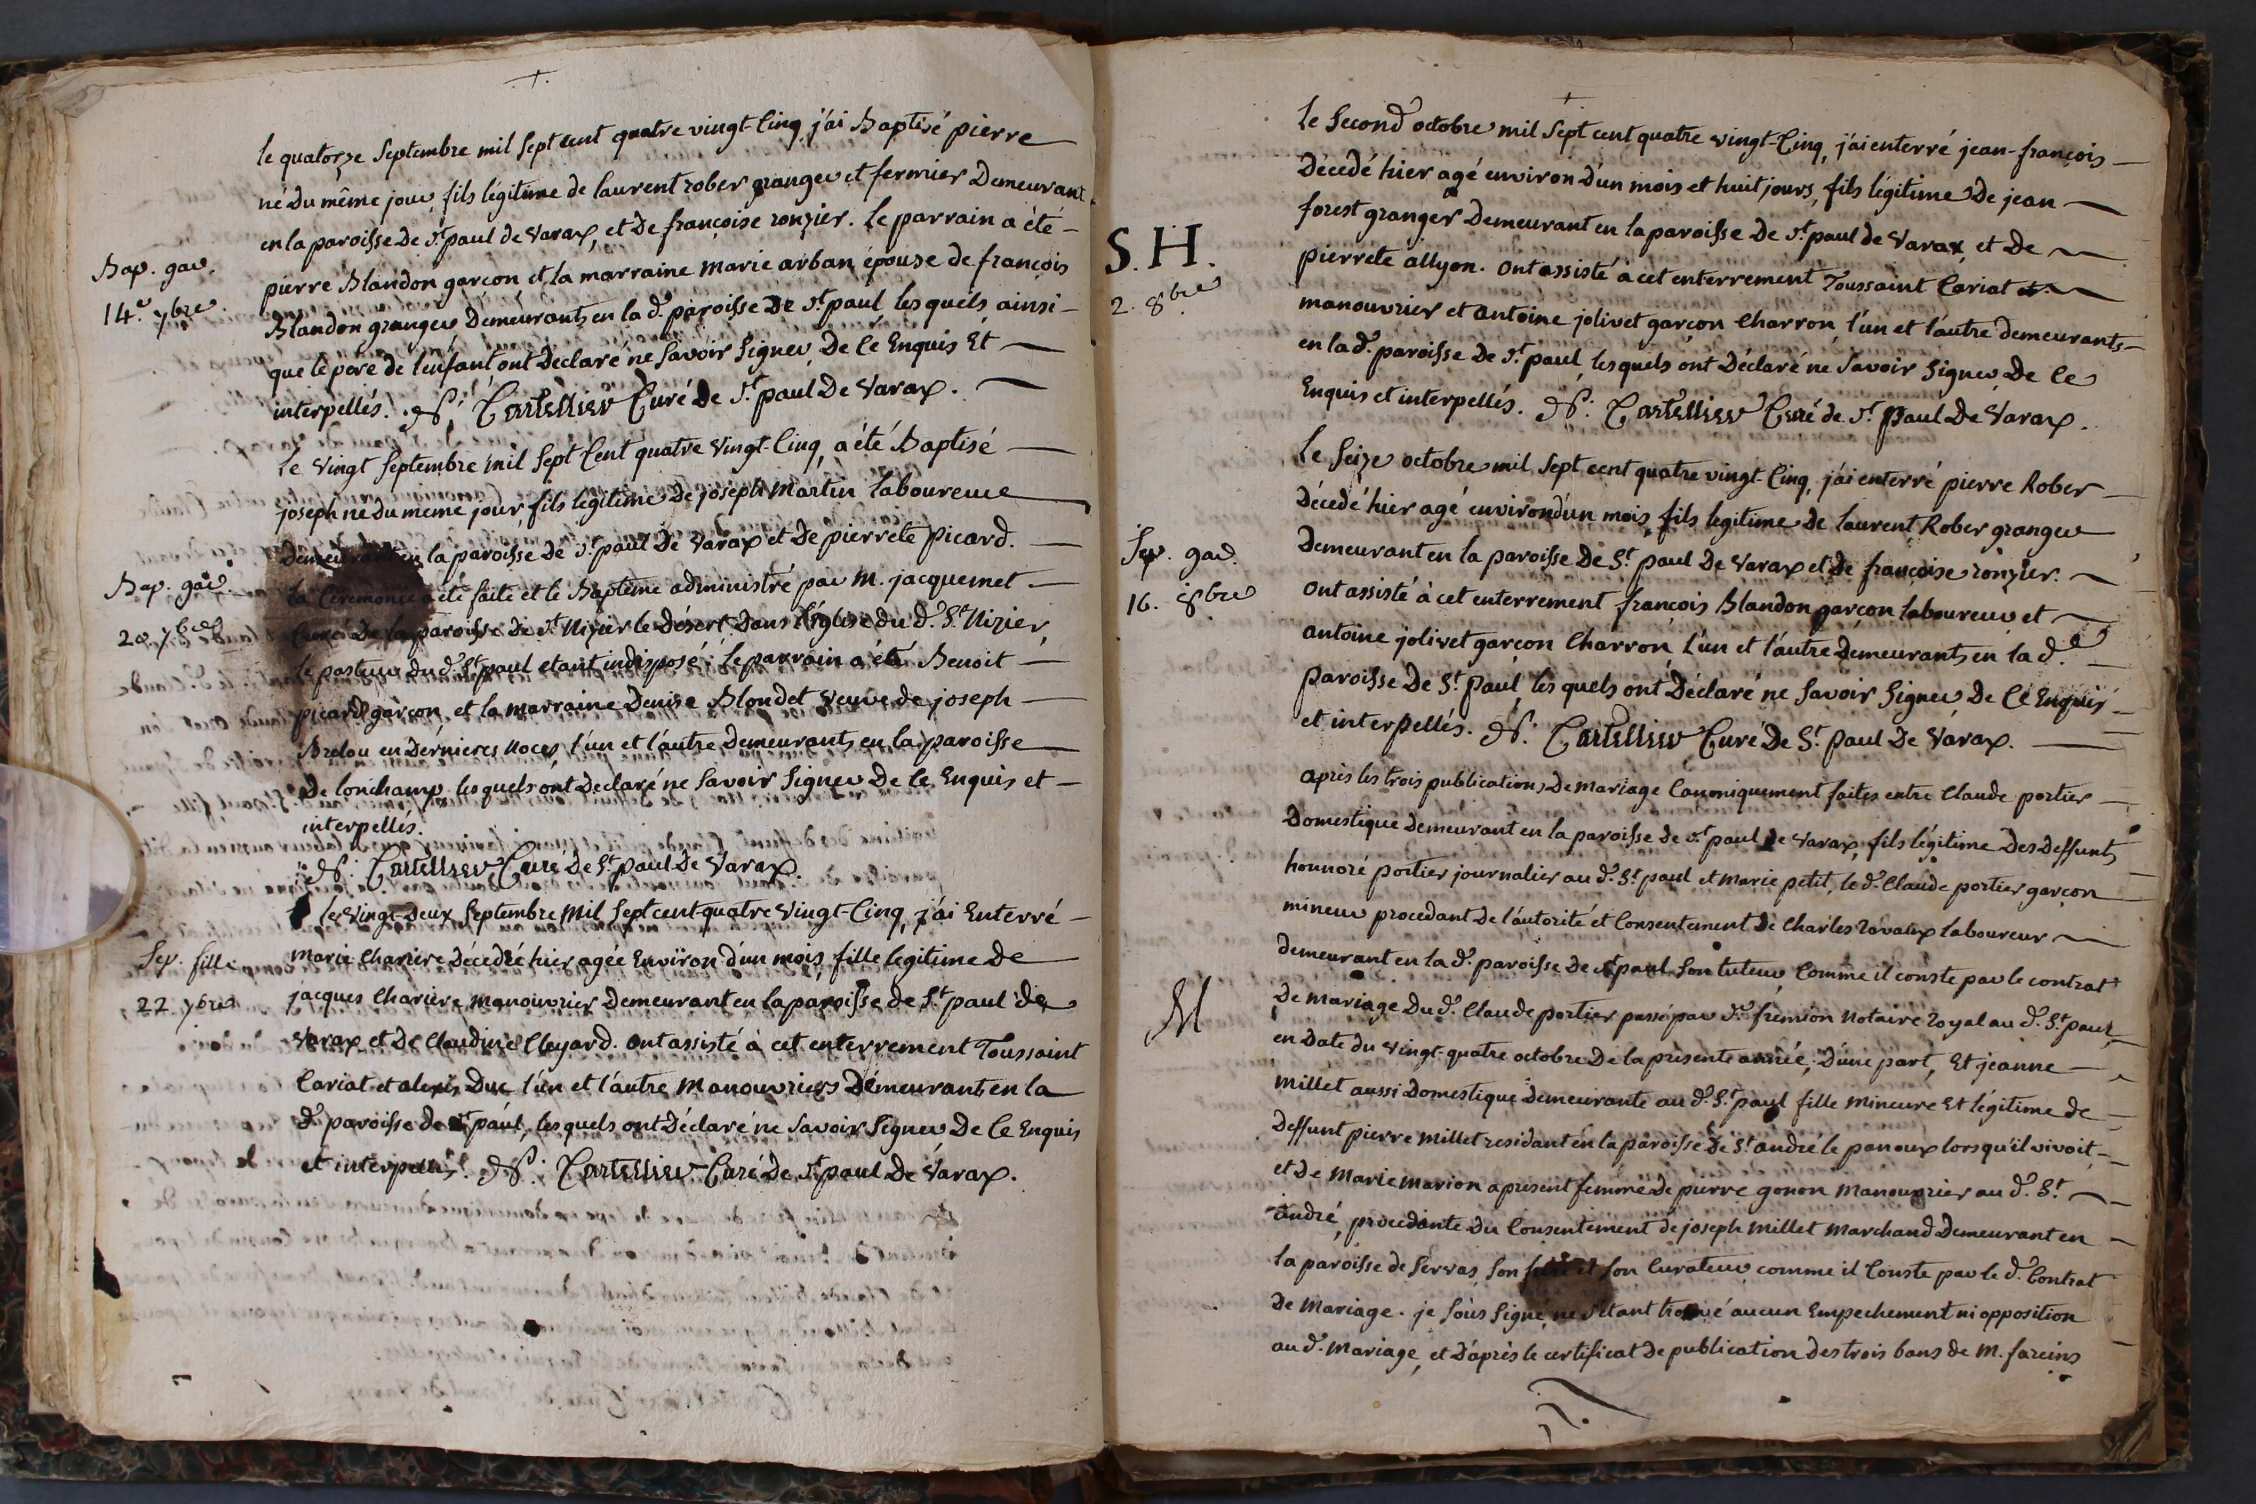 le quatorze Septembre mil Sept cent quatre vingt-Cinq, j'ai Baptisé pierre
né Du même jour, fils légitime de laurent rober granger et fermier Demeurant
en la paroisse de St. paul de varax, et De françoise ronzier. le parrain a été
Bap. gar.
14e. 7bre.
pierre Blandon garçon et la marraine marie arban épouse de françois
Blandon granger, Demeurants en la d. paroisse De St. paul, les quels ainsi
que le pere de l'enfant ont Declaré ne Savoir Signer De Ce Enquis Et
interpellés. Cartellier Curé De St. paul De Varax.
le vingt Septembre mil Sept Cent quatre vingt-Cinq, a été Baptisé
joseph né du même jour, fils légitime De joseph Martin laboureur
Demeurant en la paroisse de St. paul De Varax et De pierrete picard.
Bap. gar.
20. 7bre
la Ceremonie a été faite et le Baptême administré par M. jacquemet
Curé De la paroisse De St. Nizier le Désert Dans l'église du d. St. Nizier,
le pasteur du d. St. paul etant indisposé. le parrain a été Benoit
picard garçon, et la marraine Denise Blondet veuve de joseph
Brelou en Dernieres Noces, l'un et l'autre Demeurants en la paroisse
De lonchamp, les quels ont Declaré ne Savoir Signer De Ce Enquis et
interpellés.
Cartellier Curé De St. paul De Varax.
le vingt-Deux Septembre Mil Sept cent quatre vingt-Cinq, j'ai Enterré
Sep. fille
22 7bre
Marie Chariere Décedée hier agée Environ d'un mois, fille legitime De
jacques Chariere, Manouvrier Demeurant en la paroisse de St. paul de
Varax et De Claudine Cleyard. ont assisté à cet enterrement Toussaint
Cariat et alexis Duc l'un et l'autre Manouvriers Demeurants en la
d. paroisse de St. paul, les quels ont Déclaré ne Savoir Signer De Ce Enquis
et interpellés. Cartellier Curé De St. paul De Varax.
le Second octobre mil Sept cent quatre vingt-Cinq, j'ai enterré jean-françois
Décedé hier agé environ d'un mois et huit jours, fils légitime De jean
forest granger Demeurant en la paroisse De St. paul de Varax, et De
S. H.
2. 8bre
pierrete allyon. ont assisté à cet enterrement Toussaint Cariat
manouvrier et antoine jolivet garçon Charron, l'un et l'autre demeurants
en la d. paroisse De St. paul, les quels ont Déclaré ne Savoir Signer De Ce
Enquis et interpellés. Cartellier Curé de St. paul De Varax.
Le Seize octobre mil Sept cent quatre vingt-Cinq, j'ai enterré pierre Rober
Décedé hier agé environ d'un mois, fils legitime De laurent Rober granger
Sep. gar.
16. 8bre
Demeurant en la paroisse De St. paul De Varax et De françoise ronzier.
ont assisté à cet enterrement françois Blandon garçon laboureur, et
antoine jolivet garçon Charron, l'un et l'autre Demeurants en la d.
paroisse De St. paul, les quels ont Déclaré ne Savoir Signer De Ce Enquis
et interpellés. Cartellier Curé De St. paul De Varax.
après les trois publications De Mariage Canoniquement faites entre Claude portier
Domestique demeurant en la paroisse de St. paul de Varax, fils légitime Des deffunts
honnoré portier journalier au d. St. paul et marie petit, le d. Claude portier garçon
mineur procedant De l'autorité et Consentement De Charles ravaux laboureur
demeurant en la d. paroisse de St. paul, Son tuteur, Comme il conste par le contrat
M
De mariage Du d. Claude portier passé par Me. fremion Notaire royal au d. St. paul,
en Date du vingt-quatre octobre De la présente année, D'une part, Et jeanne
millet aussi Domestique Demeurante au d. St. paul fille mineure Et légitime de
Deffunt pierre millet residant en la paroisse De St. andré le panoux lors qu'il vivoit,
et de marie marion apresent femme de pierre gonon Manouvrier au d. St.
andré, procedante Du Consentement de joseph millet marchand Demeurant en
la paroisse de Servas, Son frere et Son Curateur, comme il Conste par le d. Contrat
De mariage. je Sous Signé ne S'etant trouvé aucun Empechement ni opposition
au d. Mariage, et D'après le certificat de publication des trois bans de M. fareins